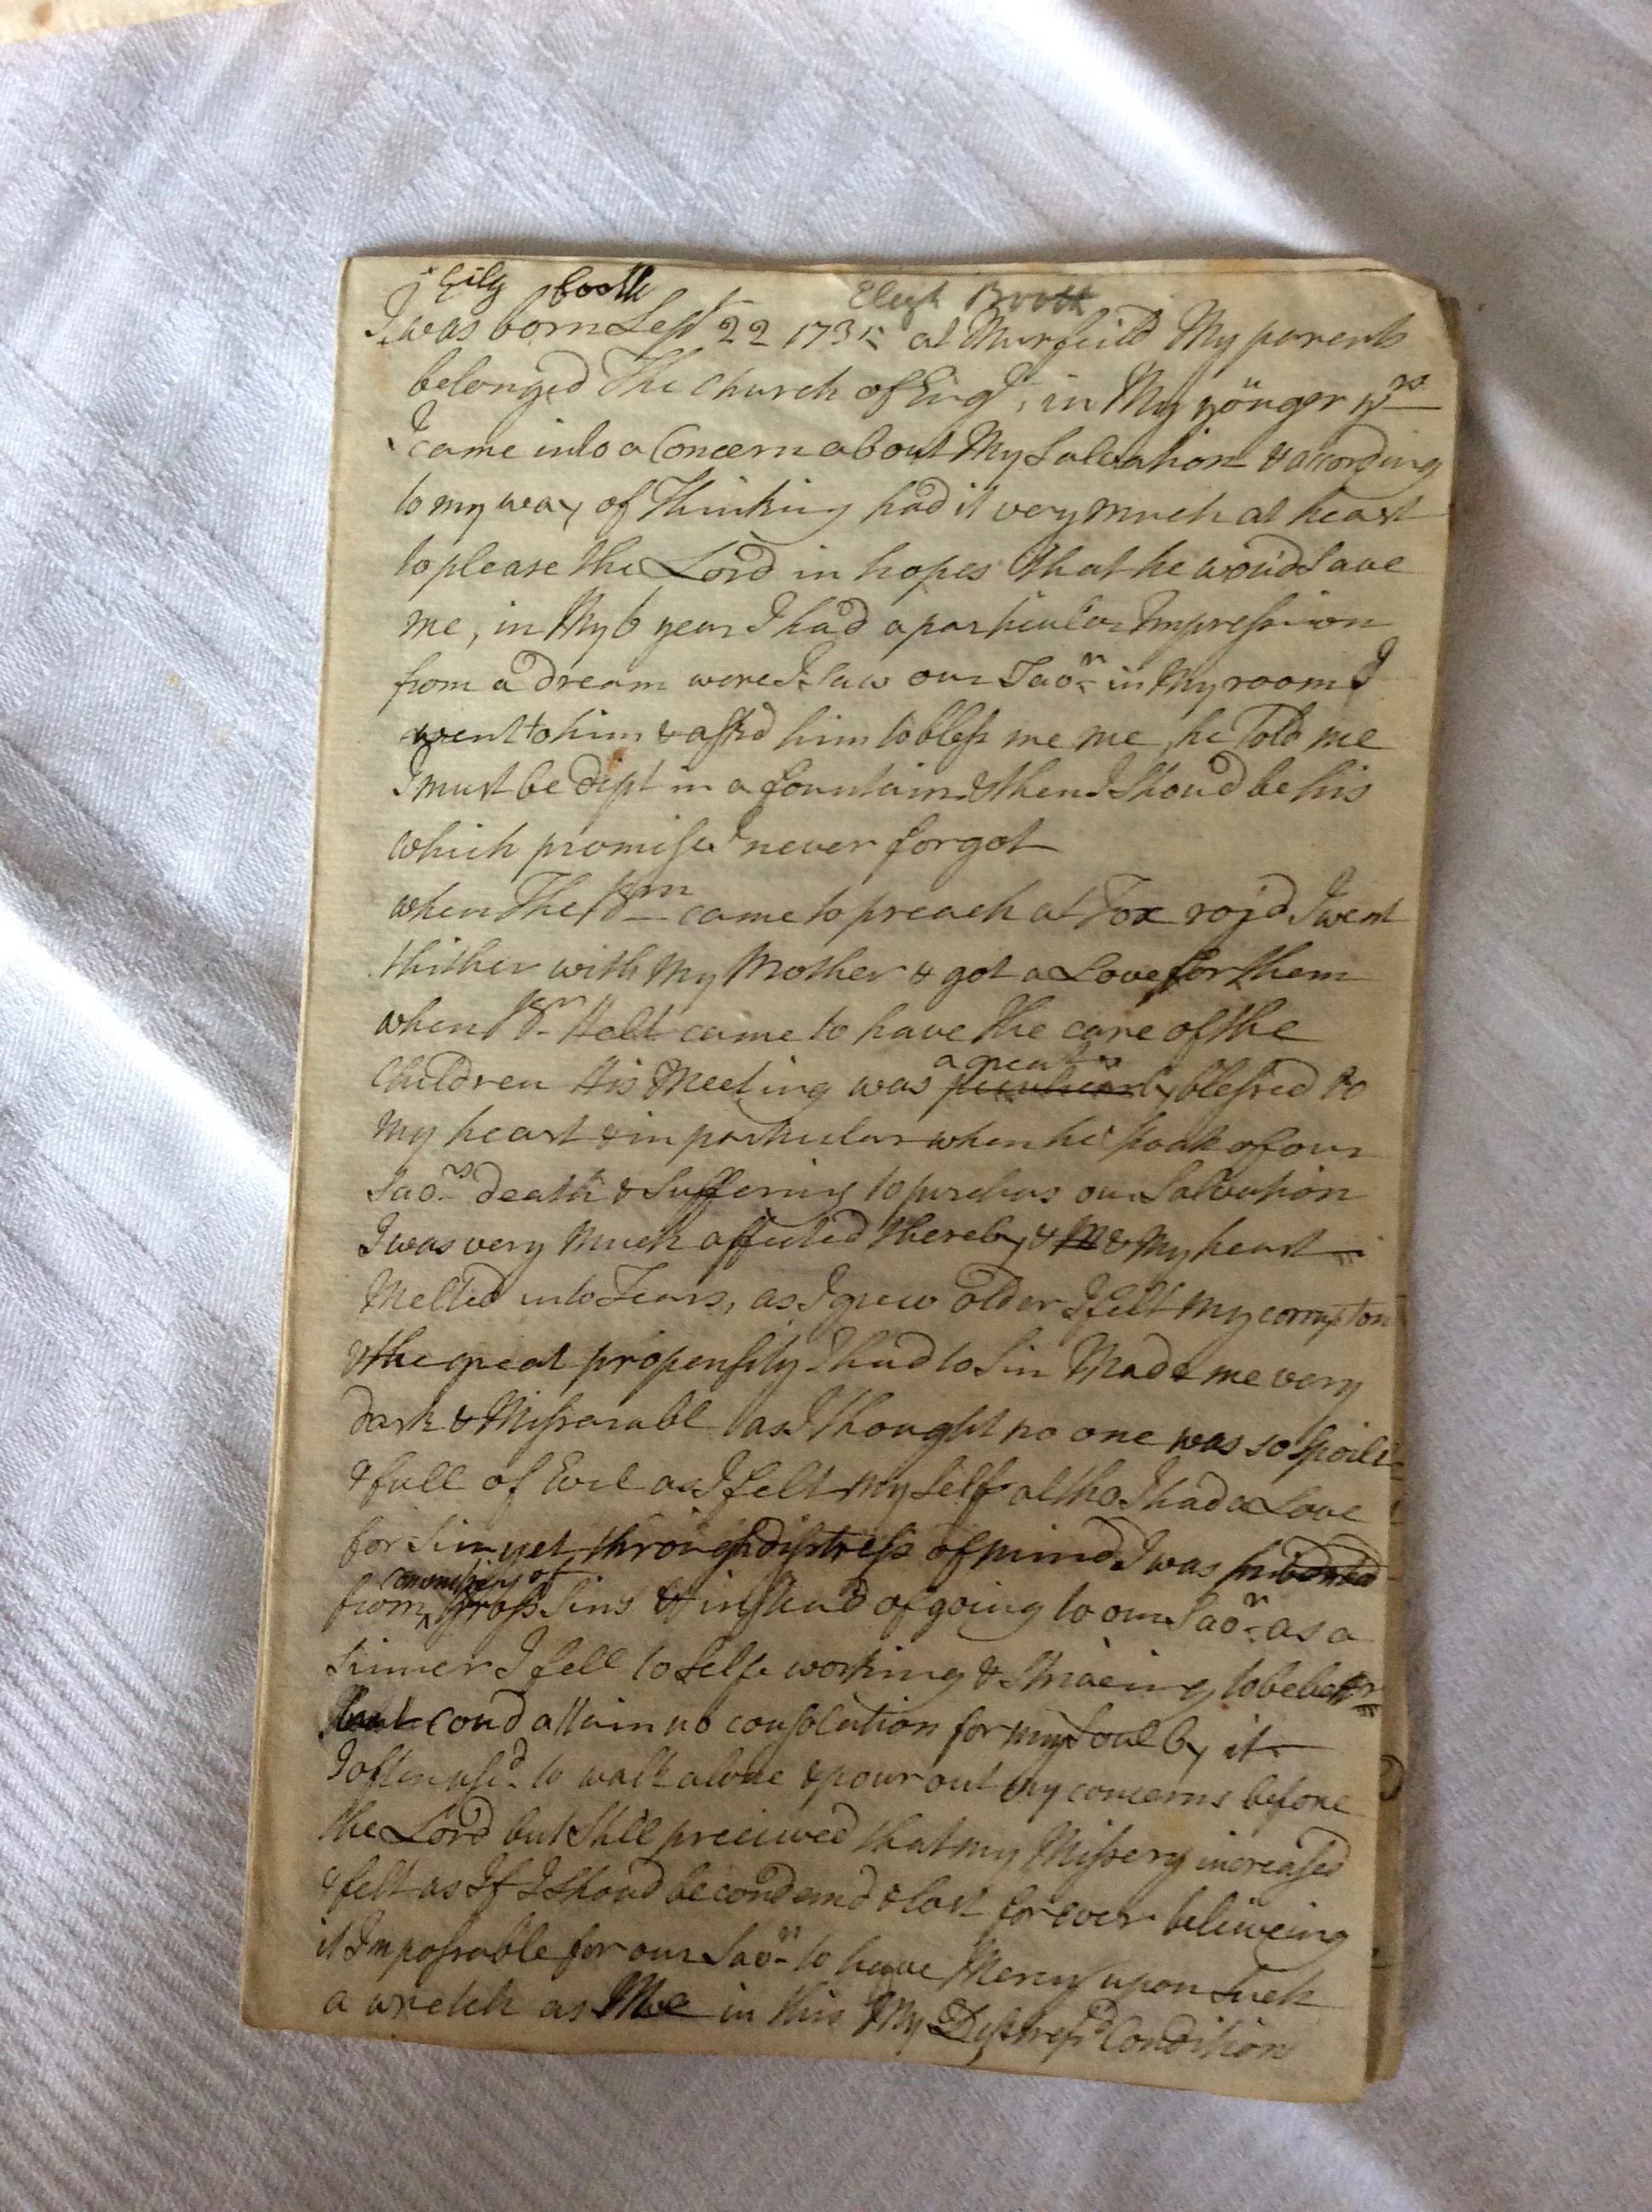 booth Eliz Booth
I was born Sept 22 1735 at Murfeild My parents
belonged The Church of Engd, in My yönger yrs
I came into a Concern about My Salvation & acording
to my way of Thinking had it very much at heart
to please the Lord in hopes that he woud Save
me, in My 6 year I had a particular Impression
from a dream were I Saw our Saor in My room I
went to him & askd him to bless me me, he Told me
I must be dipt in a fountain & then I Shoud be his
which promise I never forgot
when The Brn came to preach at Fox royd I went
thither with My Mother & got a Love for them
when Br Helt came to have the care of the
Children His Meeting was a great blessed to
My heart & in particular when he spoak of our
Saors death & Suffering to purchas our Salvation
I was very Much affected thereby & M & My heart
Melted into Tears, as I grew older I felt my corruption
& the great propensity I had to Sin Made me very
dark & Missarable as I thought no one was so Spoild
& full of Evil as I felt my Self altho I had a Love
for Sin yet through distress of mind I was
from Gross Sins & instead of going to our Saor as a
Sinner I fell to Self working & Striveing to be better
but coud attain no consolation for my Soul by it
I often used to walk alone & pour out my concerns before
the Lord but Still preceived that my Missery increased
& felt as If I Shoud be condemd & lost for ever beliveing
it Impossable for our Saor to have Mercy upon Such
a wretch as Me in this My Distressd Condition